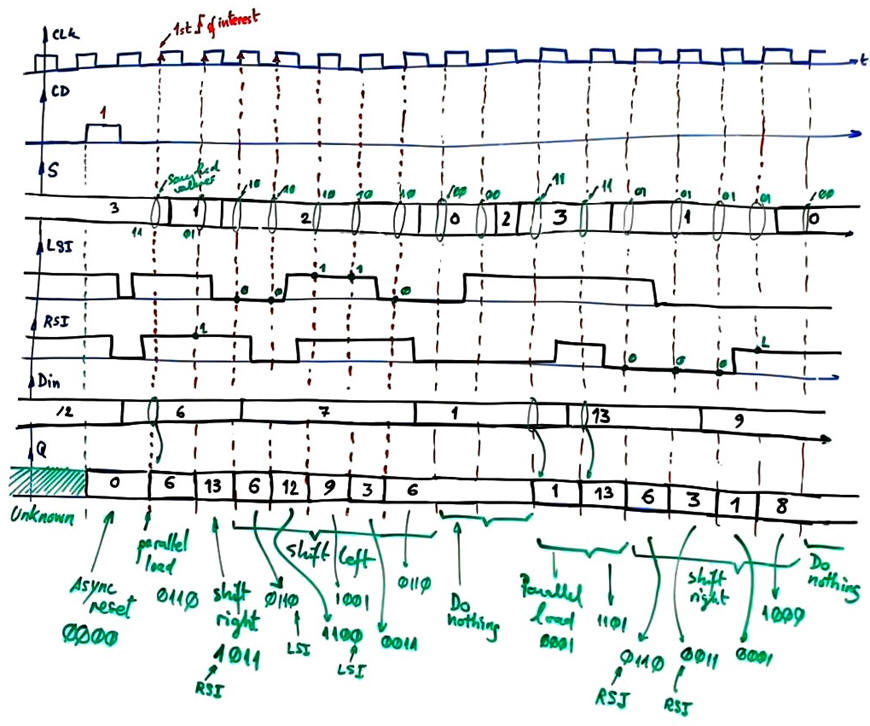 1st ∫ of interest
CLK
t
CD
1
S
sampled values
10 10 10 10 10 00 00 11 11 01 01 01 01 00
3 1 2 0 2 3 1 0
11 01
LSI
0 0 1 1 0
RSI
1 0 0 0 1
Din
12 6 7 1 13 9
Q
0 6 13 6 12 9 3 6 1 13 6 3 1 8
Unknown
Async reset
0000
parallel load
0110
shift right
1011
RSI
shift left
0110
LSI
1100
LSI
1001
0011
0110
Do nothing
Parallel load
0001
1101
shift right
0110
RSI
0011
RSI
0001
1000
Do nothing